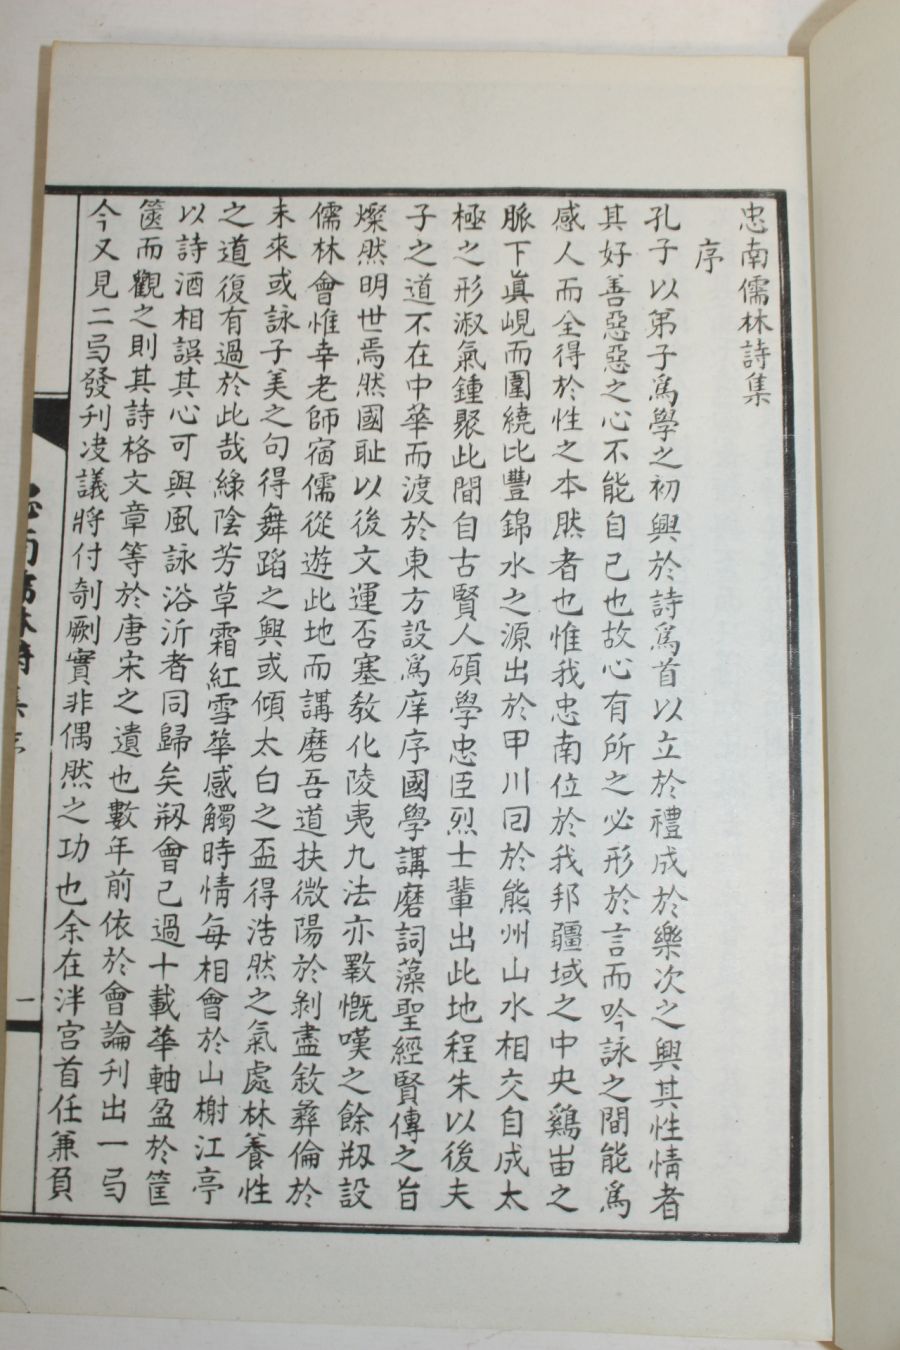 忠南儒林詩集
序
孔子以第子爲學之初興於詩爲首以立於禮成於樂次之興其性情者
其好善惡惡之心不能自己也故心有所之必形於言而吟詠之間能爲
感人而全得於性之本然者也惟我忠南位於我邦疆域之中央鷄峀之
脈下眞峴而圍繞比豐錦水之源出於甲川回於熊州山水相交自成太
極之形淑氣鍾聚此間自古賢人碩學忠臣烈士輩出此地程朱以後夫
子之道不在中華而渡於東方設爲庠序國學講磨詞藻聖經賢傳之旨
燦然明世焉然國耻以後文運否塞教化陵夷九法亦斁慨嘆之餘剏設
儒林會惟幸老師宿儒從遊此地而講磨吾道扶微陽於剝盡敘彛倫於
未來或詠子美之句得舞蹈之興或傾太白之盃得浩然之氣處林養性
之道復有過於此哉綠陰芳草霜紅雪華感觸時情每相會於山榭江亭
以詩酒相誤其心可與風詠浴沂者同歸矣剏會已過十載華軸盈於筐
篋而觀之則其詩格文章等於唐宋之遺也數年前依於會論刊出一弓
今又見二弓發刊决議將付剞劂實非偶然之功也余在泮宮首任兼負
忠南儒林詩集序
一